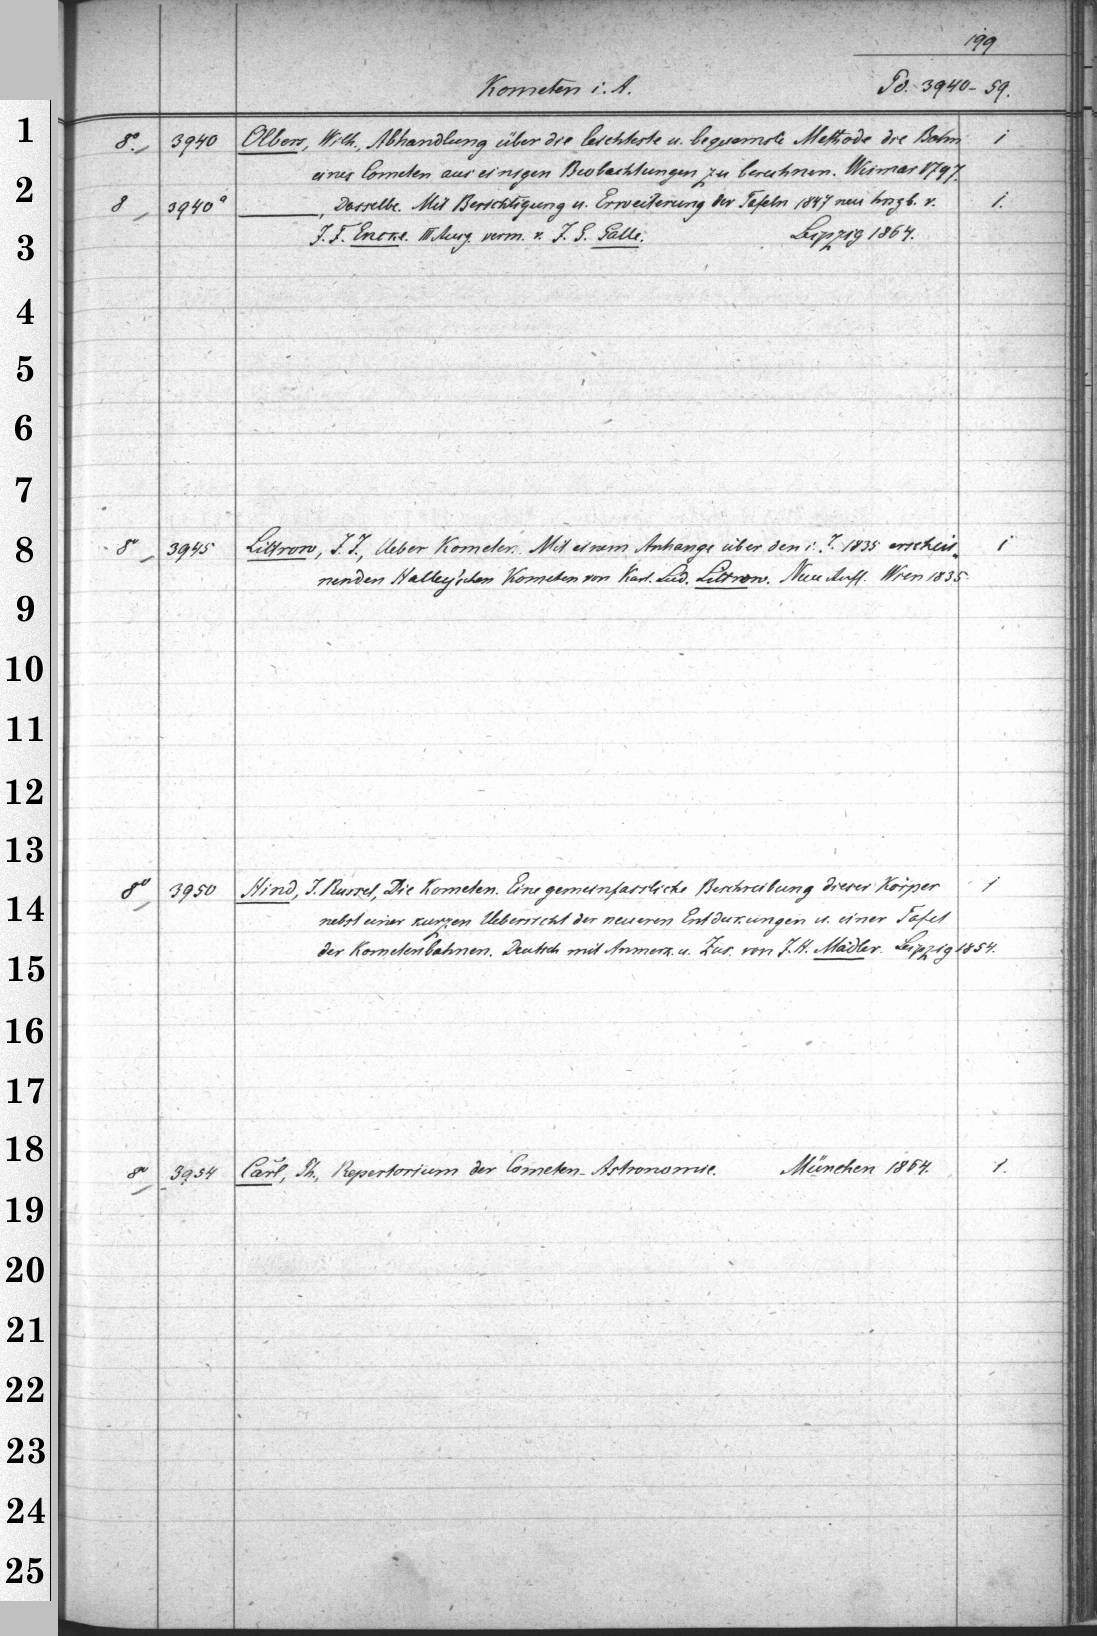 199
Kometen i. A. Pd. 3940-59.
1
8°. 3940 Olbers, Wilh., Abhandlung über die leichteste u. bequemste Methode die Bahn 1
eines Cometen aus einigen Beobachtungen zu berechnen. Weimar 1797.
2
8 3940ª ———, Dasselbe. Mit Berichtigung u. Erweiterung der Tafeln 1847 neu hrsgb. v. 1.
3
J. F. Encke. III Ausg. verm. v. J. G. Galle. Leipzig 1864.
4
5
6
7
8
8° 3945 Littrow, J. J., Ueber Kometen. Mit einem Anhange über den i. J. 1835 erschei- 1
nenden Halley'schen Kometen von Karl Lud. Littrow. Neue Aufl. Wien 1835.
9
10
11
12
13
8° 3950 Hind, J. Russel, Die Kometen. Eine gemeinfassliche Beschreibung dieser Körper 1
14
nebst einer kurzen Uebersicht der neueren Entdekungen u. einer Tafel
der Kometenbahnen. Deutsch mit Anmerk. u. Zus. von J. H. Mädler. Leipzig 1854.
15
16
17
18
8° 3954 Carl, Ph., Repertorium der Cometen-Astronomie. München 1864. 1.
19
20
21
22
23
24
25